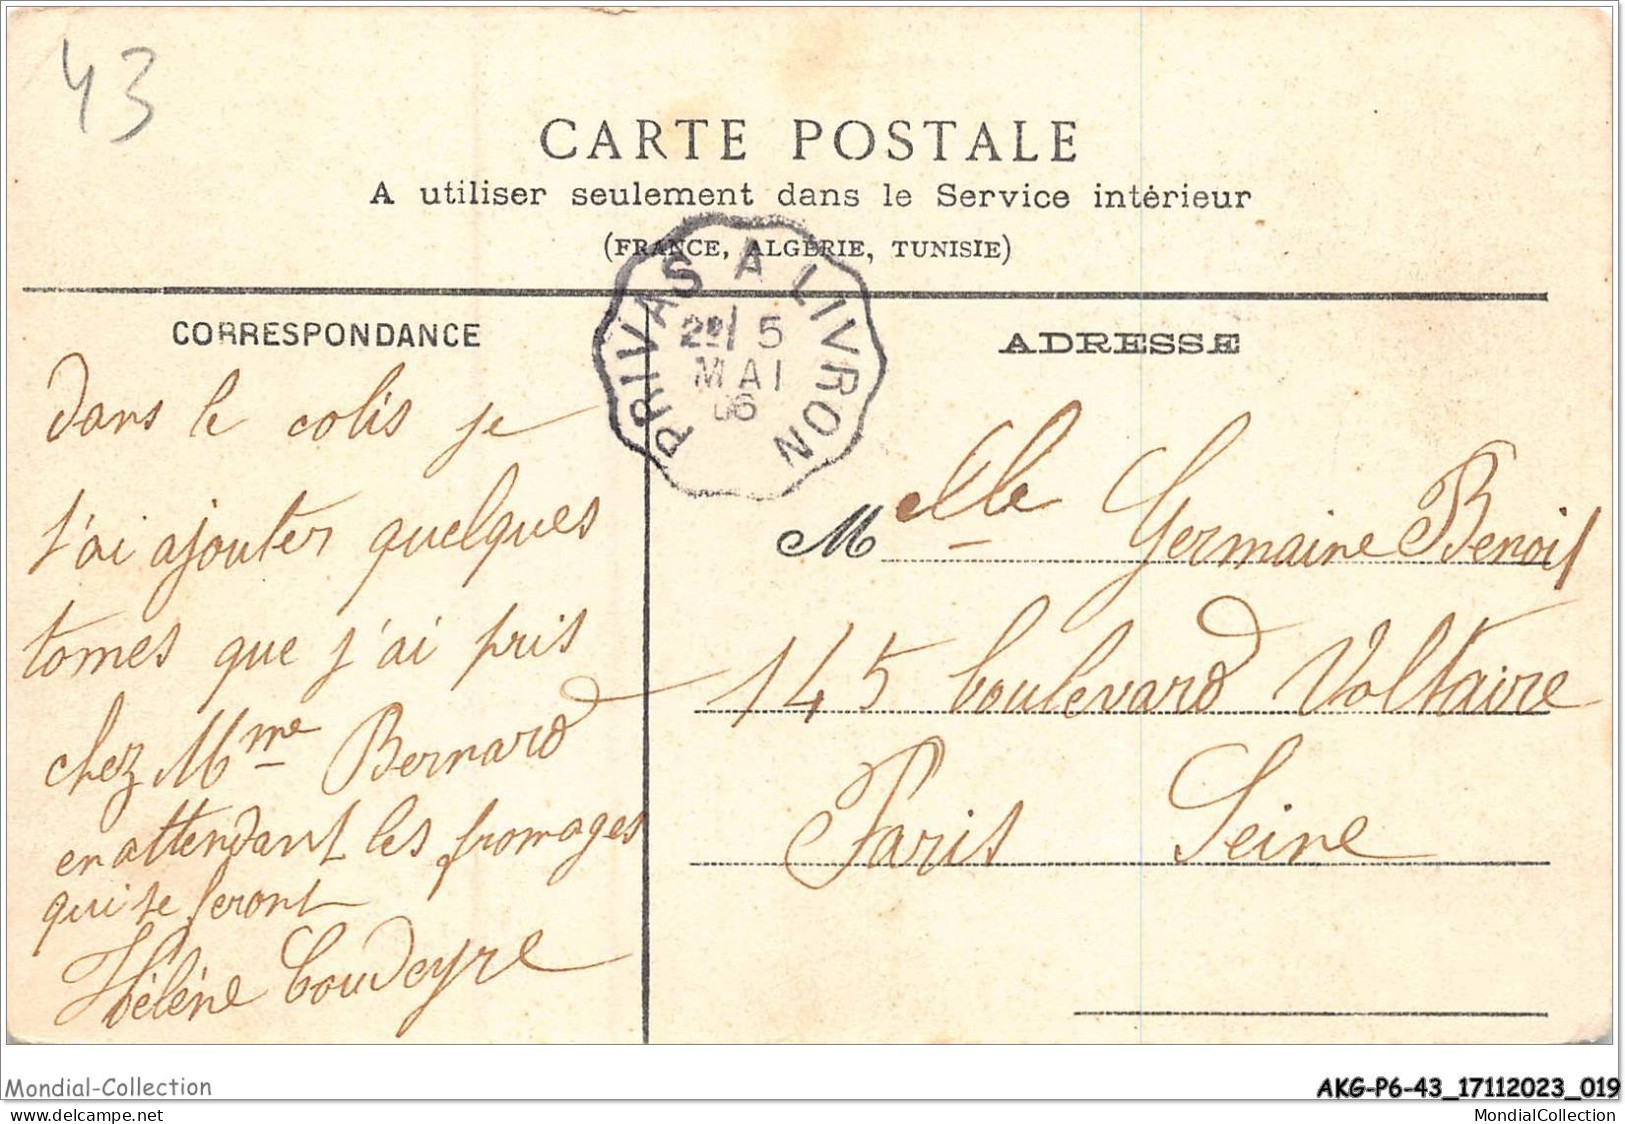 43
CARTE POSTALE
A utiliser seulement dans le Service intérieur
(FRANCE, ALGÉRIE, TUNISIE)
PRIVAS A LIVRON
2e/ 5
MAI
06
CORRESPONDANCE
dans le colis je
t'ai ajouter quelques
tomes que j'ai pris
chez Mme Bernard
en attendant les fromages
qui se feront
Hélène Coudeyre
ADRESSE
Melle Germaine Benoit
145 boulevard Voltaire
Paris Seine
Mondial-Collection
AKG-P6-43_17112023_019
www.delcampe.net
MondialCollection